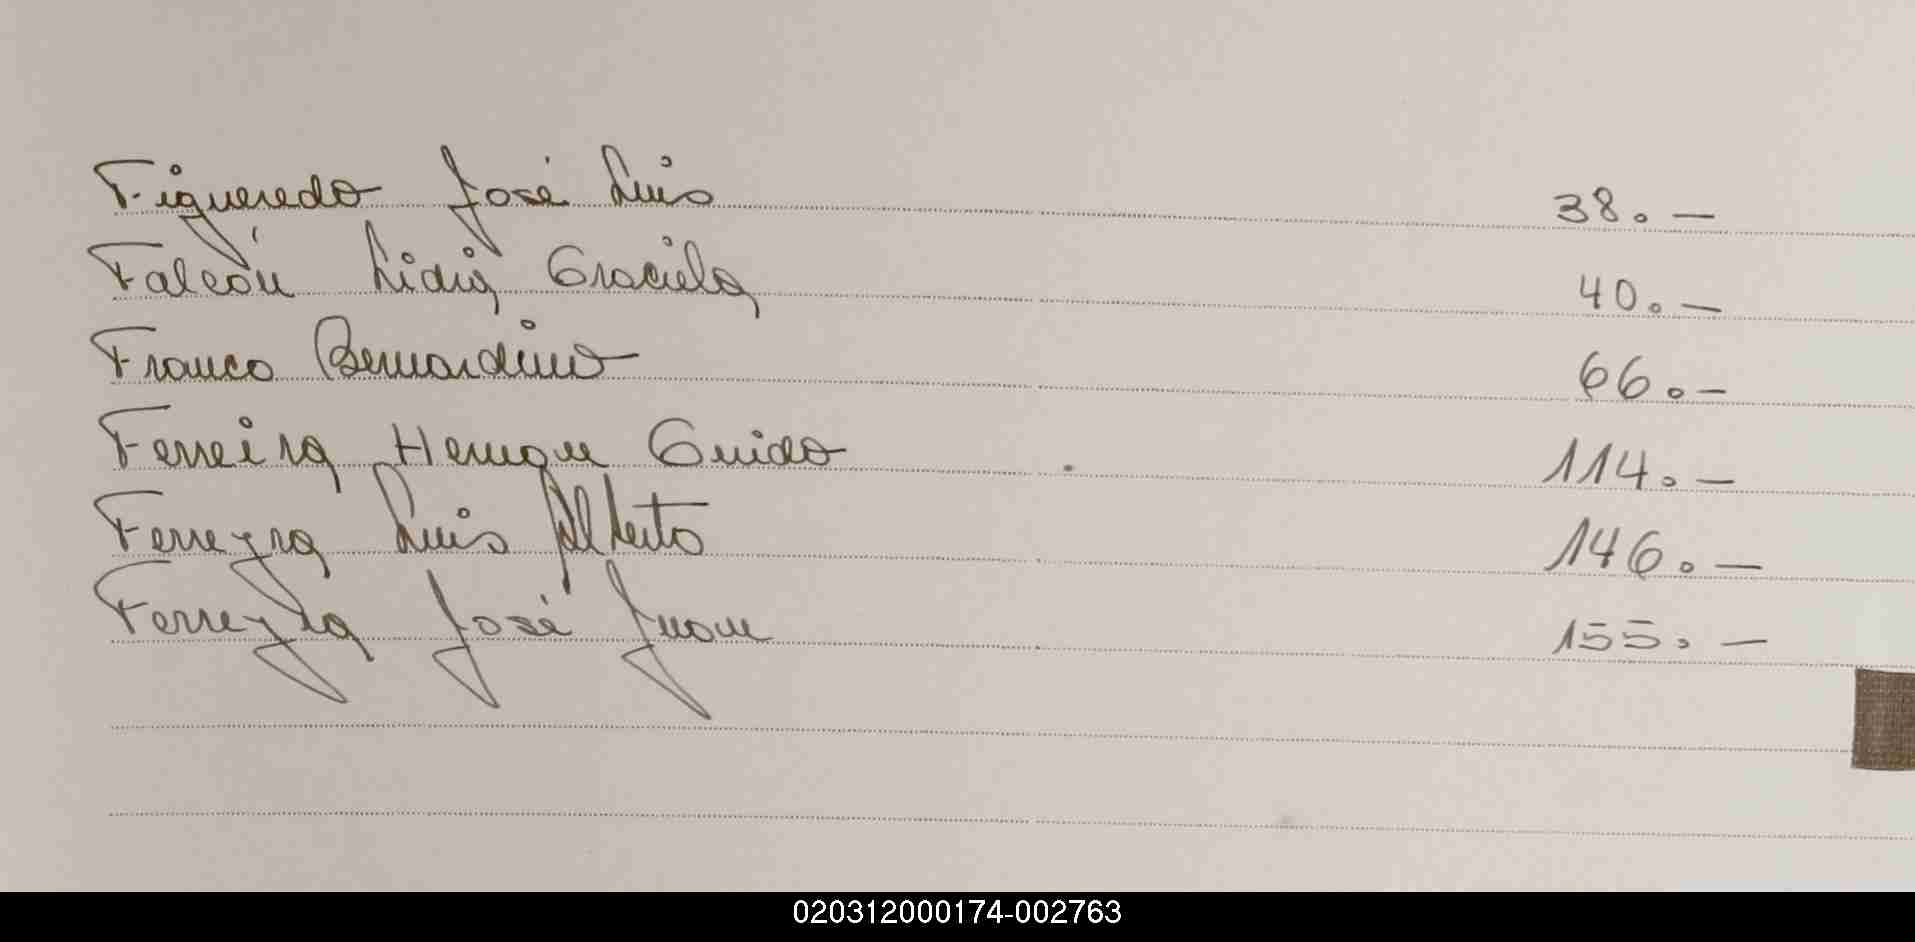 Figueredo José Luis 38.-
Falcón Lidia Graciela 40.-
Franco Bernardino 66.-
Ferreira Henrique Guido 114.-
Ferreyra Luis Alberto 146.-
Ferreyra José Juan 155.-
020312000174-002763